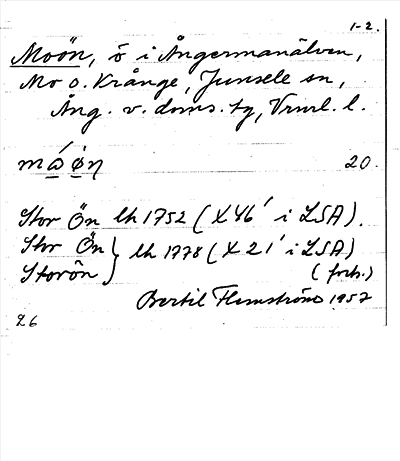 1-2.
Moön, ö i Ångermanälven,
Mo o. Krånge, Junsele sn,
Ång. v. doms. tg, Vnrl. l.
20.
Stor Ön lh 1752 (X46' i LSA).
Stor Ön } lh 1778 (X21' i LSA)
Storön
(forts.)
Bertil Flemström 1957
26